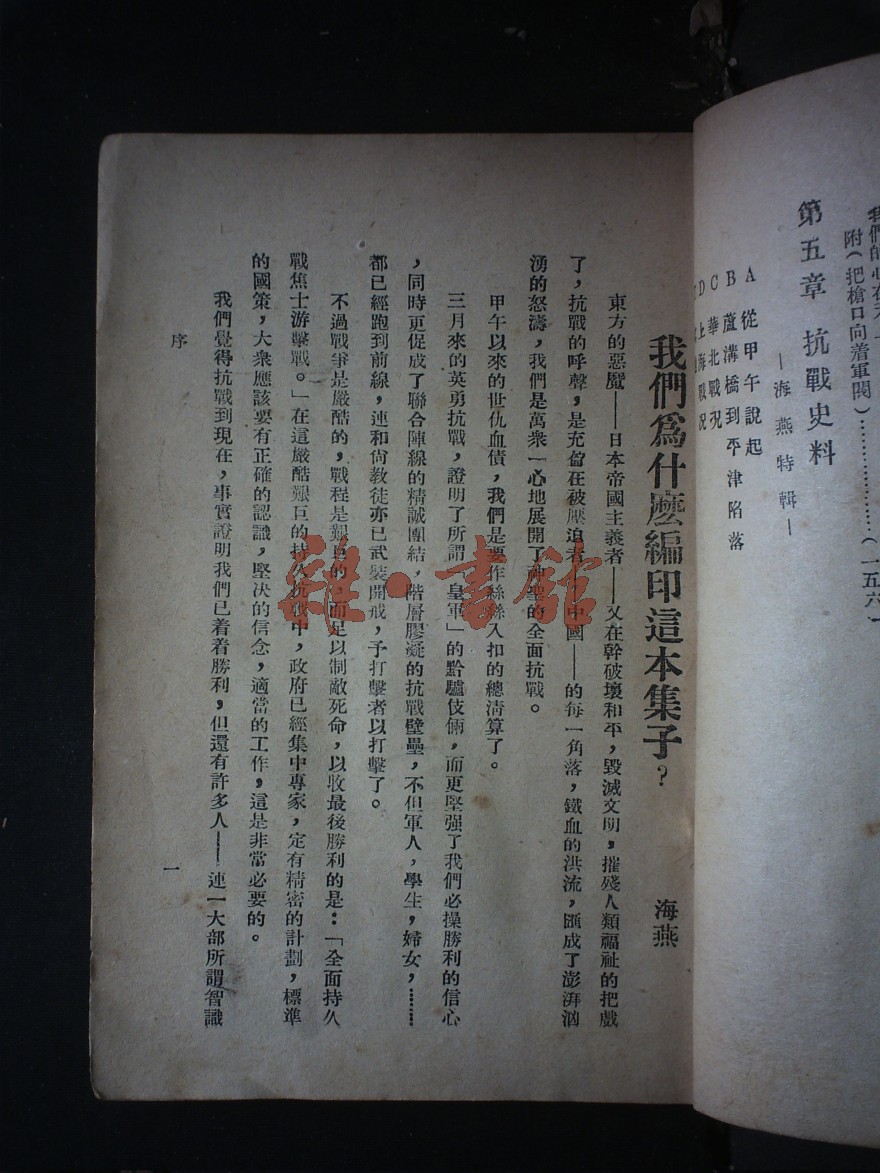 附(把槍口向着軍閥)…………………(一五六)
第五章 抗戰史料
—海燕特輯—
A 從甲午說起
B 蘆溝橋到平津陷落
C 華北戰况
D 上海戰况
我們爲什麽編印這本集子?
海燕
東方的惡魔——日本帝國主義者——又在幹破壞和平,毀滅文明,摧殘人類福祉的把戲
了,抗戰的呼聲,是充奮在被壓迫者——中國——的每一角落,鐵血的洪流,匯成了澎湃汹
湧的怒濤,我們是萬衆一心地展開了神聖的全面抗戰。
甲午以來的世仇血債,我們是要作絲絲入扣的總淸算了。
三月來的英勇抗戰,證明了所謂「皇軍」的黔驢伎倆,而更堅强了我們必操勝利的信心
,同時更促成了聯合陣線的精誠團結,階層膠凝的抗戰壁壘,不但軍人,學生,婦女,……
都已經跑到前線,連和尙教徒亦已武裝開戒,予打擊者以打擊了。
不過戰爭是嚴酷的,戰程是艱巨的,而足以制敵死命,以收最後勝利的是:「全面持久
戰焦士游擊戰。」在這嚴酷艱巨的持久抗戰中,政府已經集中專家,定有精密的計劃,標準
的國策,大衆應該要有正確的認識,堅决的信念,適當的工作,這是非常必要的。
我們覺得抗戰到現在,事實證明我們已着着勝利,但還有許多人——連一大部所謂智識
序
一
雜·書館